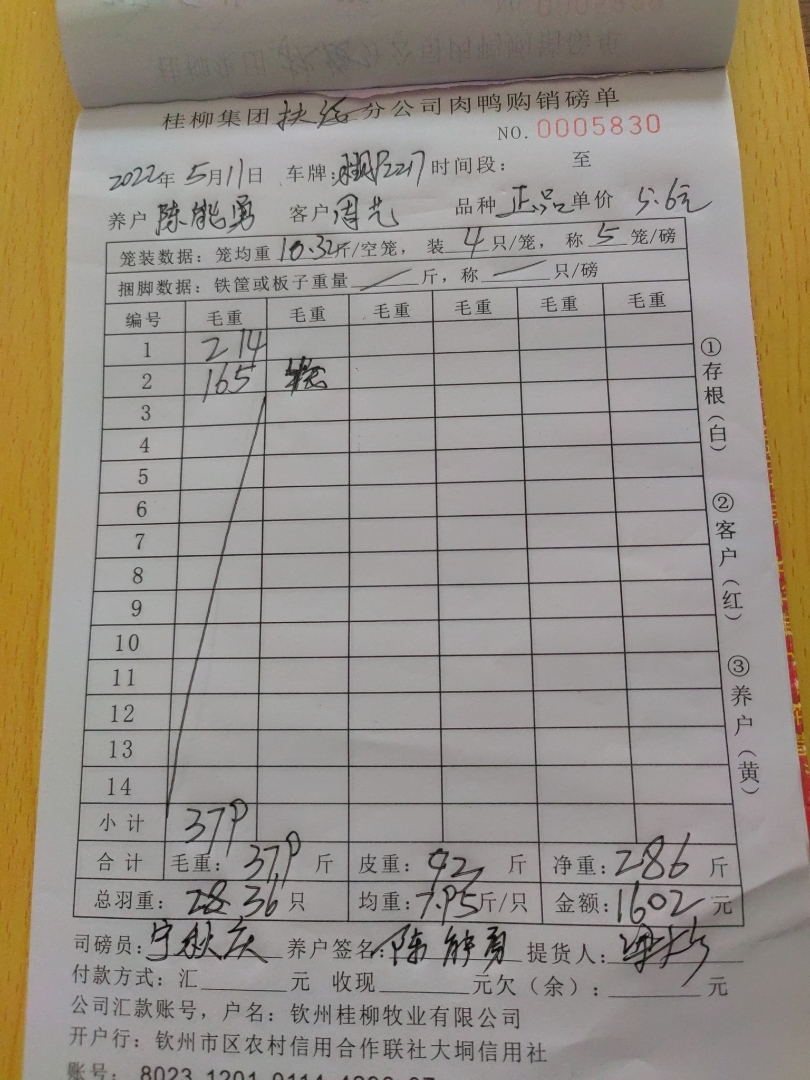 桂柳集团扶绥分公司肉鸭购销磅单
NO.0005830
2022年5月11日 车牌: 2217 时间段: 至
养户 陈能勇 客户 周艺 品种 正品 单价 5.6元
笼装数据：笼均重10.32斤/空笼，装4只/笼，称5笼/磅
捆脚数据：铁筐或板子重量 斤，称 只/磅
编号 毛重 毛重 毛重 毛重 毛重 毛重
1 214
2 165
3
4
5
6
7
8
9
10
11
12
13
14
小计 379
合计 毛重：379斤 皮重：92斤 净重：286斤
总羽重：36只 均重：7.95斤/只 金额：1602元
司磅员：宁秋庆 养户签名：陈能勇 提货人：
付款方式：汇 元 收现 元欠（余）： 元
公司汇款账号，户名：钦州桂柳牧业有限公司
开户行：钦州市区农村信用合作联社大垌信用社
账号： 8023 1201 0114
①存根（白）
②客户（红）
③养户（黄）